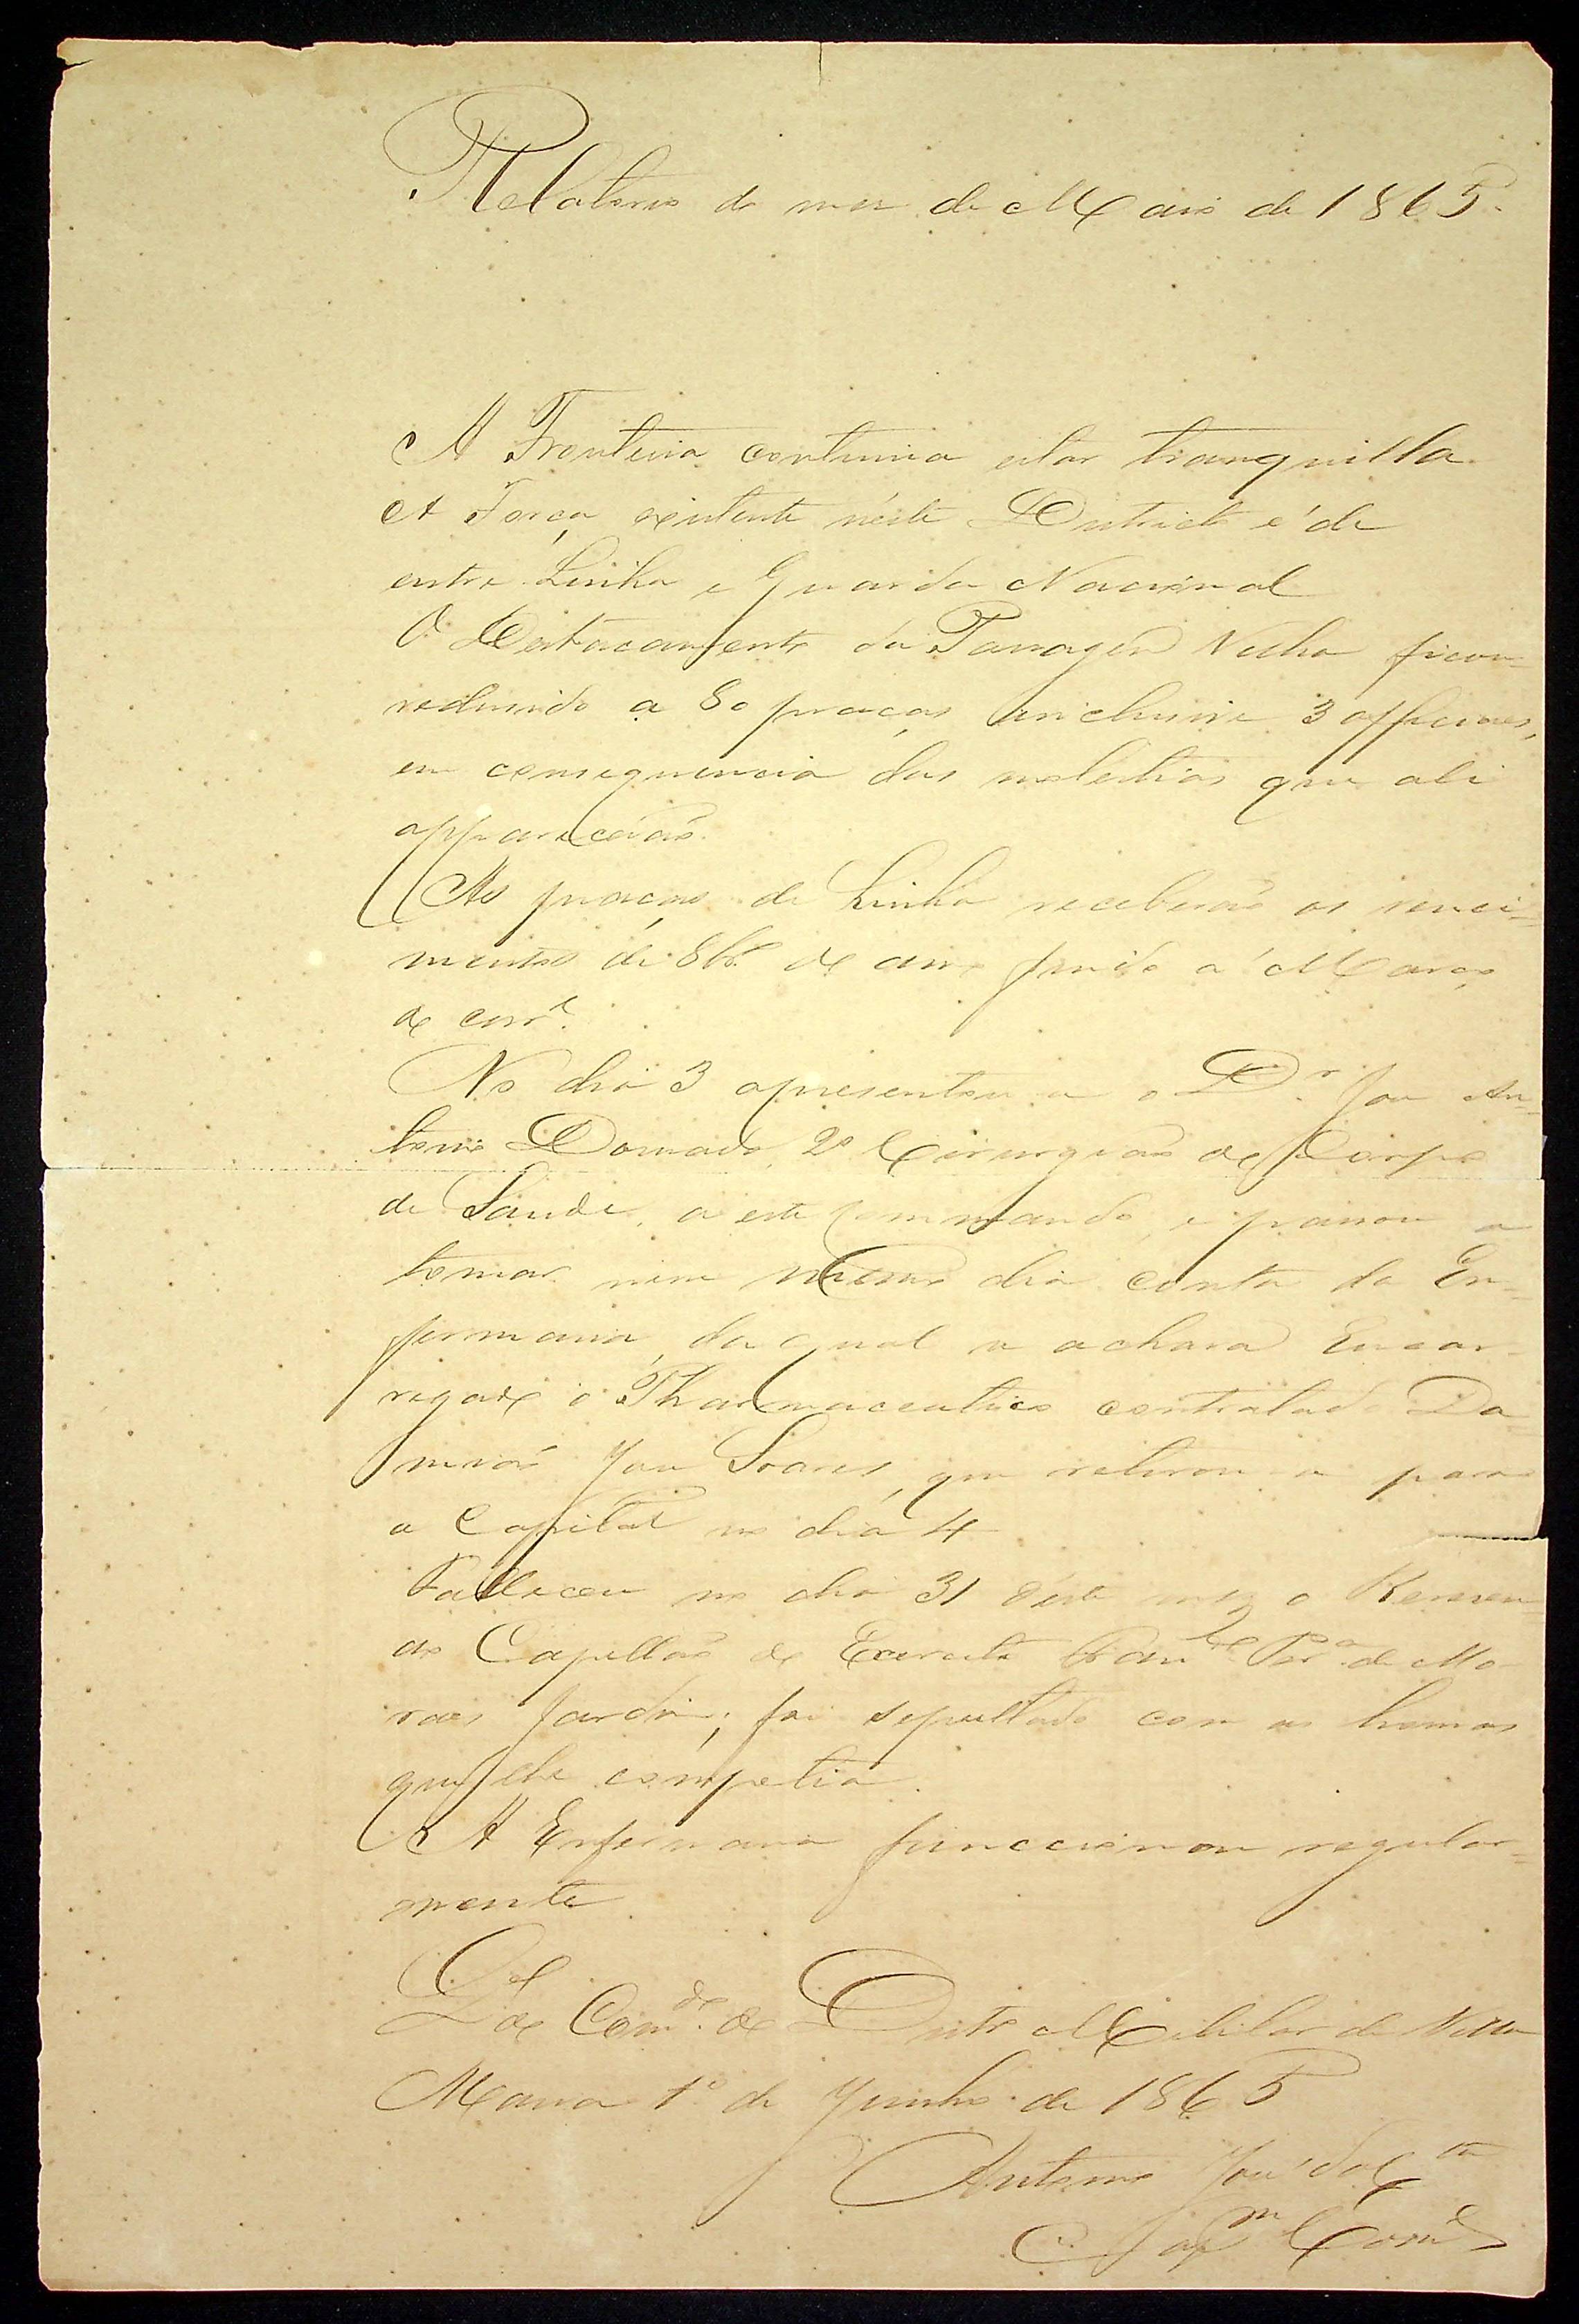 Relatorio do mez de Maio de 1865.
A Fronteira continua estar tranquilla.
A Força existente n'éste Districto é de
entre Linha e Guarda Nacional
O Destacamento da Passagem Velha ficou
redusido a 80 praças inclusive 3 officiaes,
em consequencia das molestias que ali
apparecerão.
As praças de Linha receberão os venci-
mentos de 8br.º do anno findo á Março
do corr.e
No dia 3 apresentou-se o Dr. José An-
tonio Dourado, 2º Cirurgião do Corpo
de Saude, a este Commando, e passou a
tomar n'esse mesmo dia conta da En-
fermaria, da qual se achava encar-
regado o Pharmaceutico contratado Da-
mião José Soares, que retirou-se para
a Capital no dia 4
Falleceu no dia 31 d'este mez o Reveren-
do Capellão do Exercito Per.a de Mo-
raes Jardim; foi sepultado com as honras
que lhe competia.
A Enfermaria funccionou regular-
mente.
Q.el do Com.do do Distr.o Militar de Villa
Maria 1º de Junho de 1865
Antonio José da C.ta
Cap.m Com.e